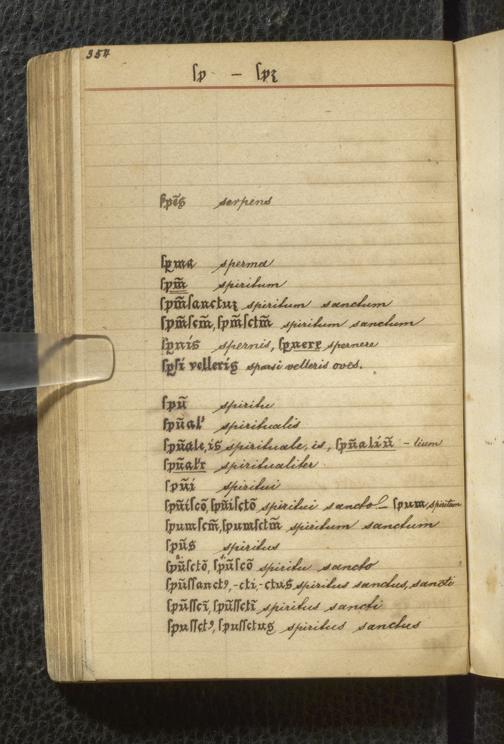 354
ſp — ſpꝫ
ſpēs serpens
ſpma sperma
ſpm̄ spiritum
ſpm̄ſanctuꝫ spiritum sanctum
ſpm̄ſcm̄, ſpm̄ſctm̄ spiritum sanctum
ſpnis spernis, ſpnere spernere
ſpſi velleris sparsi velleris oves.
ſpū spiritu
ſpūal' spiritualis
ſpūale, is spirituale, is, ſpūaliū - lium
ſpūal'r spiritualiter
ſpūi spiritui
ſpūiſcō, ſpūiſctō spiritui sancto! — ſpum, spiritum
ſpumſcm̄, ſpumſctm̄ spiritum sanctum
ſpūs spiritus
ſpūſctō, ſpūſcō spiritu sancto
ſpūſſanctꝰ, -cti, -ctus, spiritus sanctus, sancti
ſpūſſcī, ſpūſſctī spiritus sancti
ſpuſſctꝰ, ſpuſſctus, spiritus sanctus